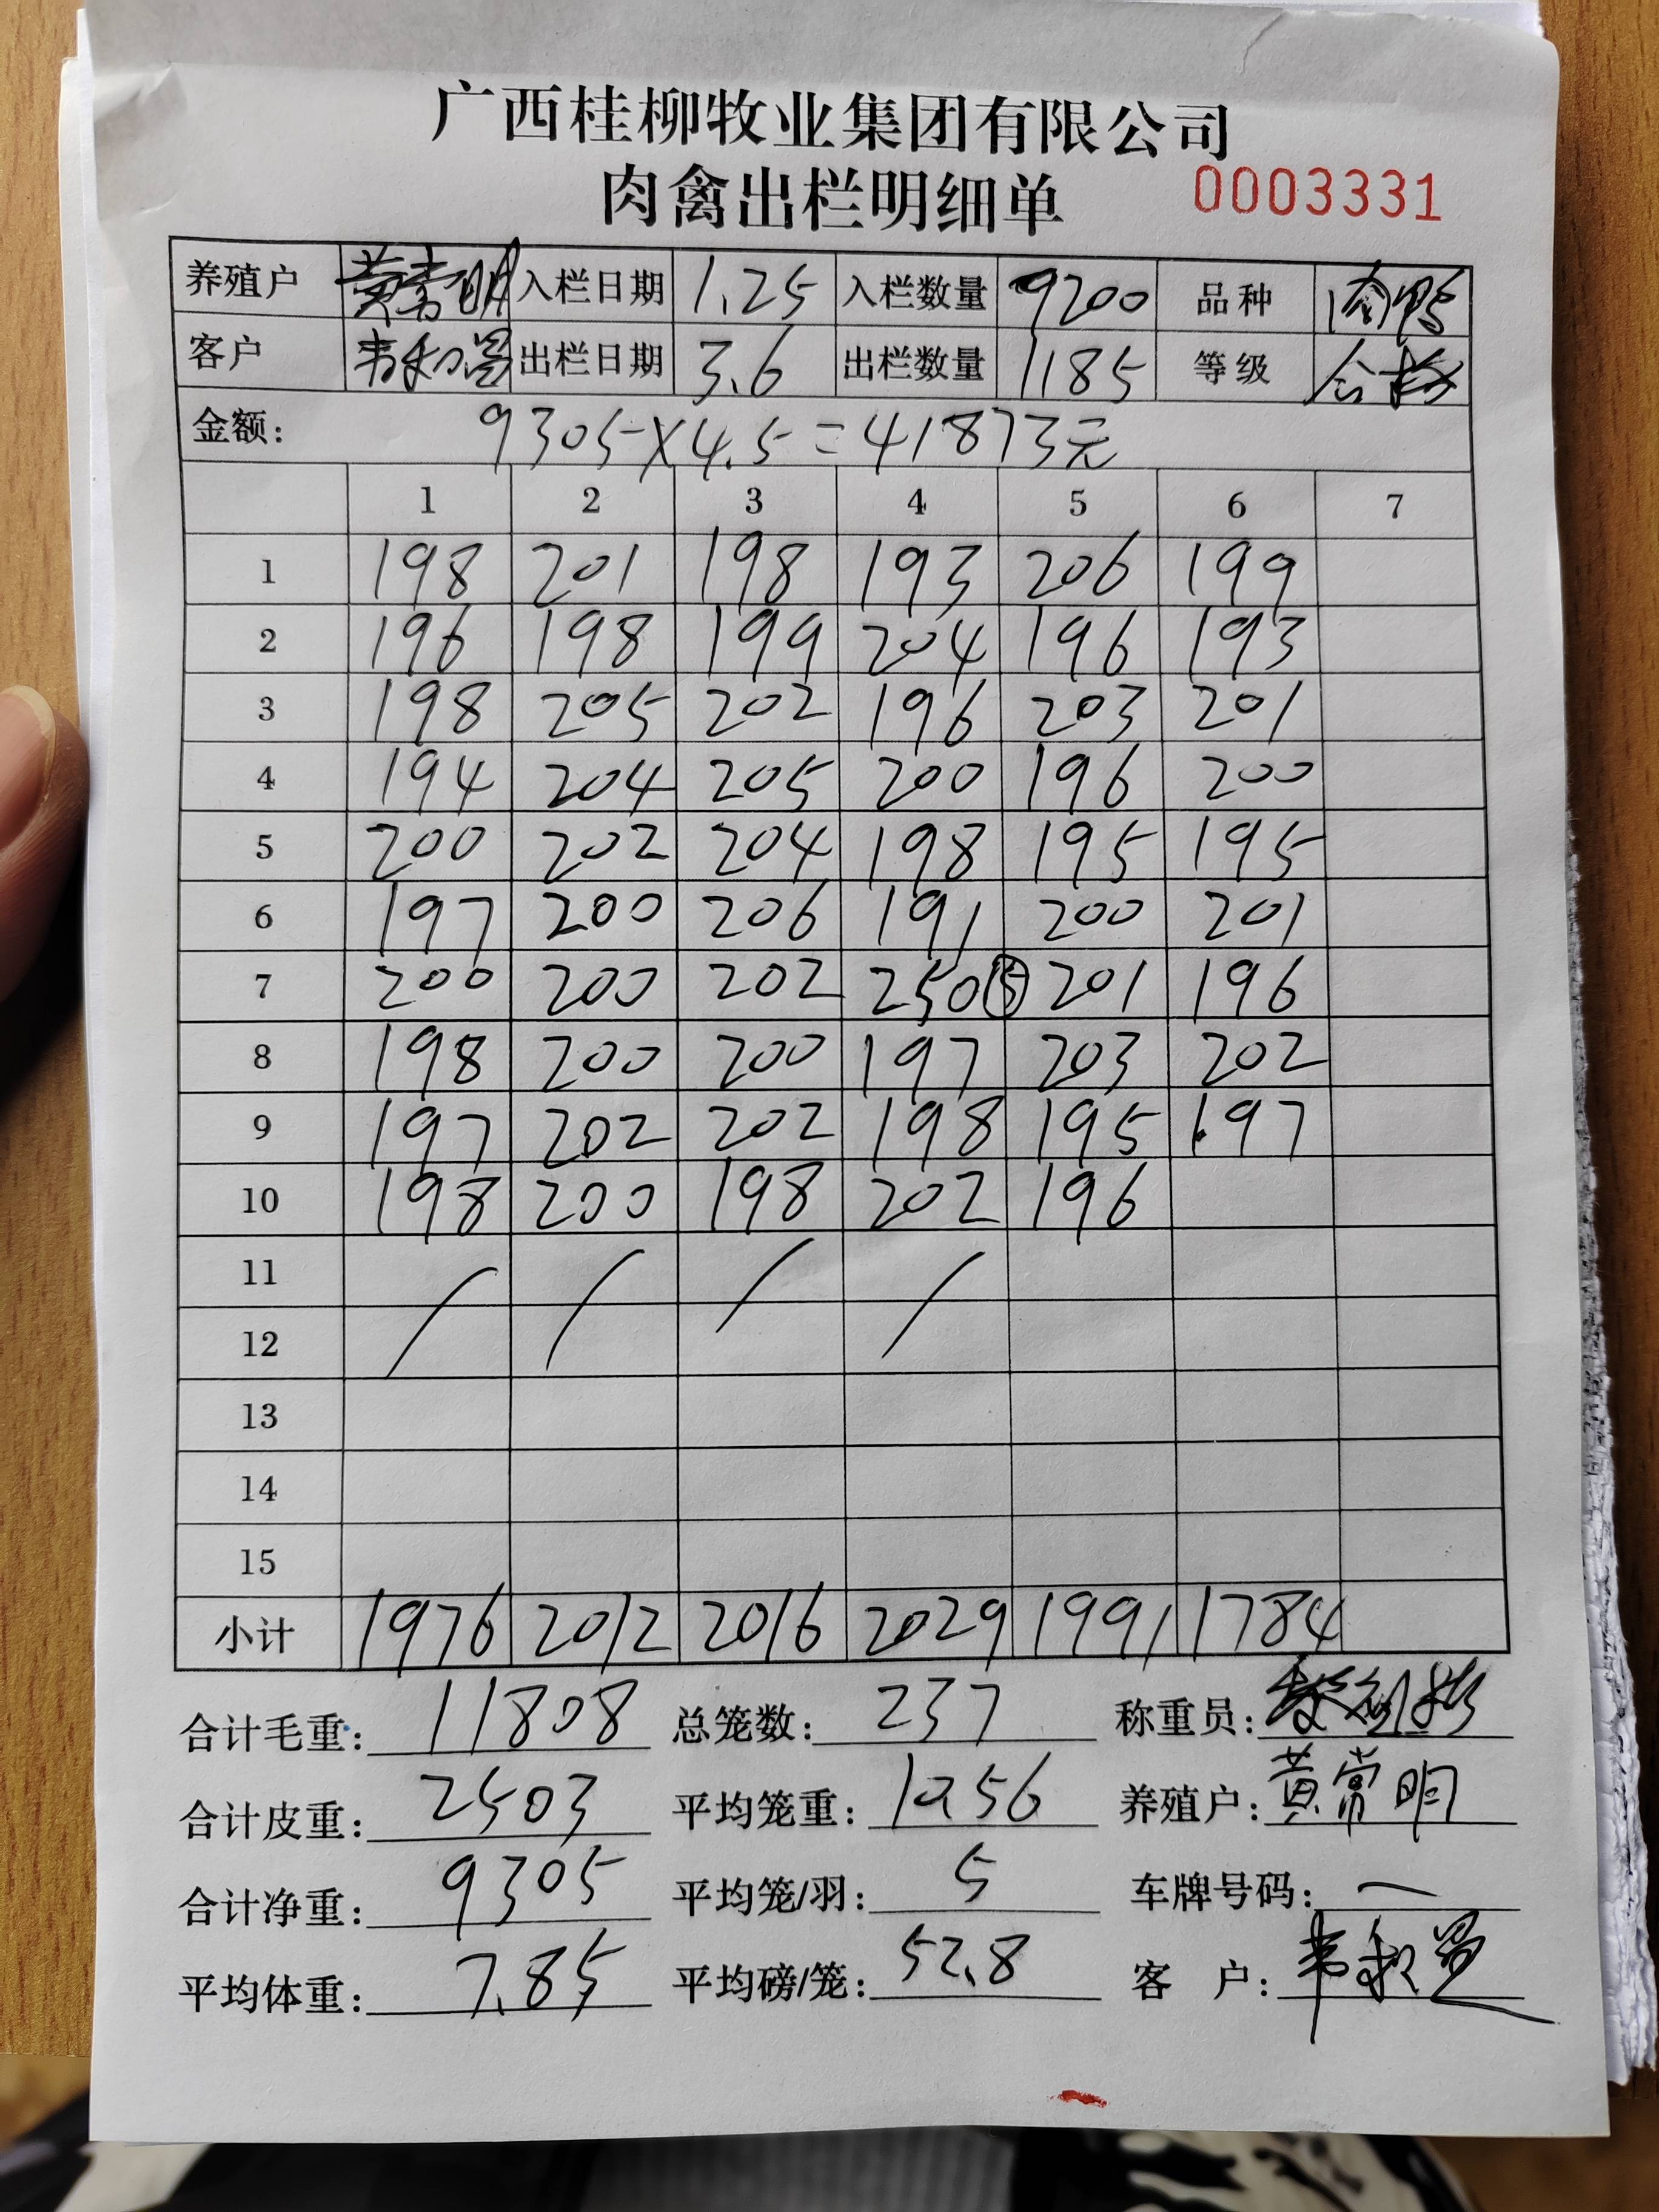 广西桂柳牧业集团有限公司
肉禽出栏明细单 0003331
养殖户 黄常明 入栏日期 1.25 入栏数量 9200 品种 肉鸭
客户 出栏日期 3.6 出栏数量 1185 等级 合格
金额: 9305×4.5=41873元
1 2 3 4 5 6 7
1 198 201 198 193 206 199
2 196 198 199 204 196 193
3 198 205 202 196 203 201
4 194 204 205 200 196 200
5 200 202 204 198 195 195
6 197 200 206 191 200 201
7 200 200 202 250 201 196
8 198 200 200 197 203 202
9 197 202 202 198 195 197
10 198 200 198 202 196
11
12
13
14
15
小计 1976 2012 2016 2029 1991 1784
合计毛重: 11808 总笼数: 237 称重员:
合计皮重: 2503 平均笼重: 10.56 养殖户: 黄常明
合计净重: 9305 平均笼/羽: 5 车牌号码: 一
平均体重: 7.85 平均磅/笼: 52.8 客 户: